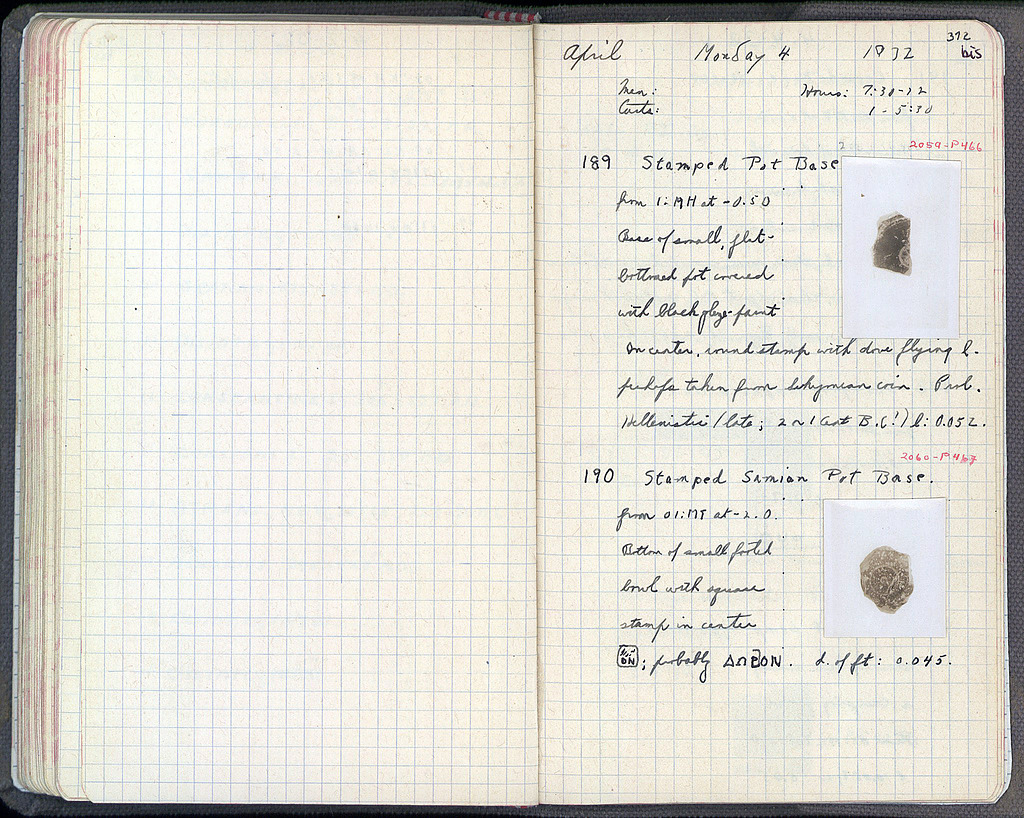 372
April Monday 4 1932 bis
Men: Hours: 7:30-12
Casts: 1-5:30
2059-P466
2
189 Stamped Pot Base
from 1:ΜΗ at -0.50
Base of small, flat-
bottomed pot covered
with black glaze-paint
In center, round stamp with dove flying l.
perhaps taken from Sikyonian coin. Prob.
Hellenistic (late; 2 ~ 1 Cent B.C!) l: 0.052.
2060-P467
190 Stamped Samian Pot Base.
from at -2.0.
Bottom of small footed
bowl with square
stamp in center
ΩΝ ; probably ΔΩΡΟΝ. d. of ft: 0.045.